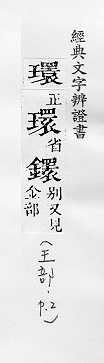 經典文字辨證書
環正
環省
鐶別又見金部
(王部・p.2)